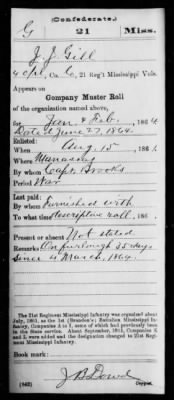 (Confederate.)
G 21 Miss.
J. J. Gill
4 Cpl, Co. C, 21 Reg't Mississippi Vols.
Appears on
Company Muster Roll
of the organization named above,
for Jan & Feb., 1864
Dated June 27, 1864.
Enlisted:
When Aug. 15, 186
Where Manassas
By whom Capt. Brooks
Period War
Last paid:
By whom Furnished with
To what time Descriptive roll, 186 .
Present or absent Not stated
Remarks: On furlough 35 days
since 4 March, 1864.
The 21st Regiment Mississippi Infantry was organized about
July, 1861, as the 1st (Brandon's) Battalion Mississippi In-
fantry, Companies A to I, some of which had previously been
in the State service. About September, 1861, Companies K
and L were added and the designation changed to 21st Regi-
ment Mississippi Infantry.
Book mark:
J B Dowd
(642) Copyist.